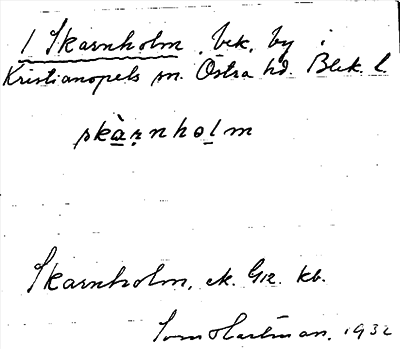 1 Skarnholm, bek. by i
Kristianopels sn. Östra hd. Blek. l.
skàrnholm
Skarnholm, ek. Gtz. kb.
Sven Hartman. 1932